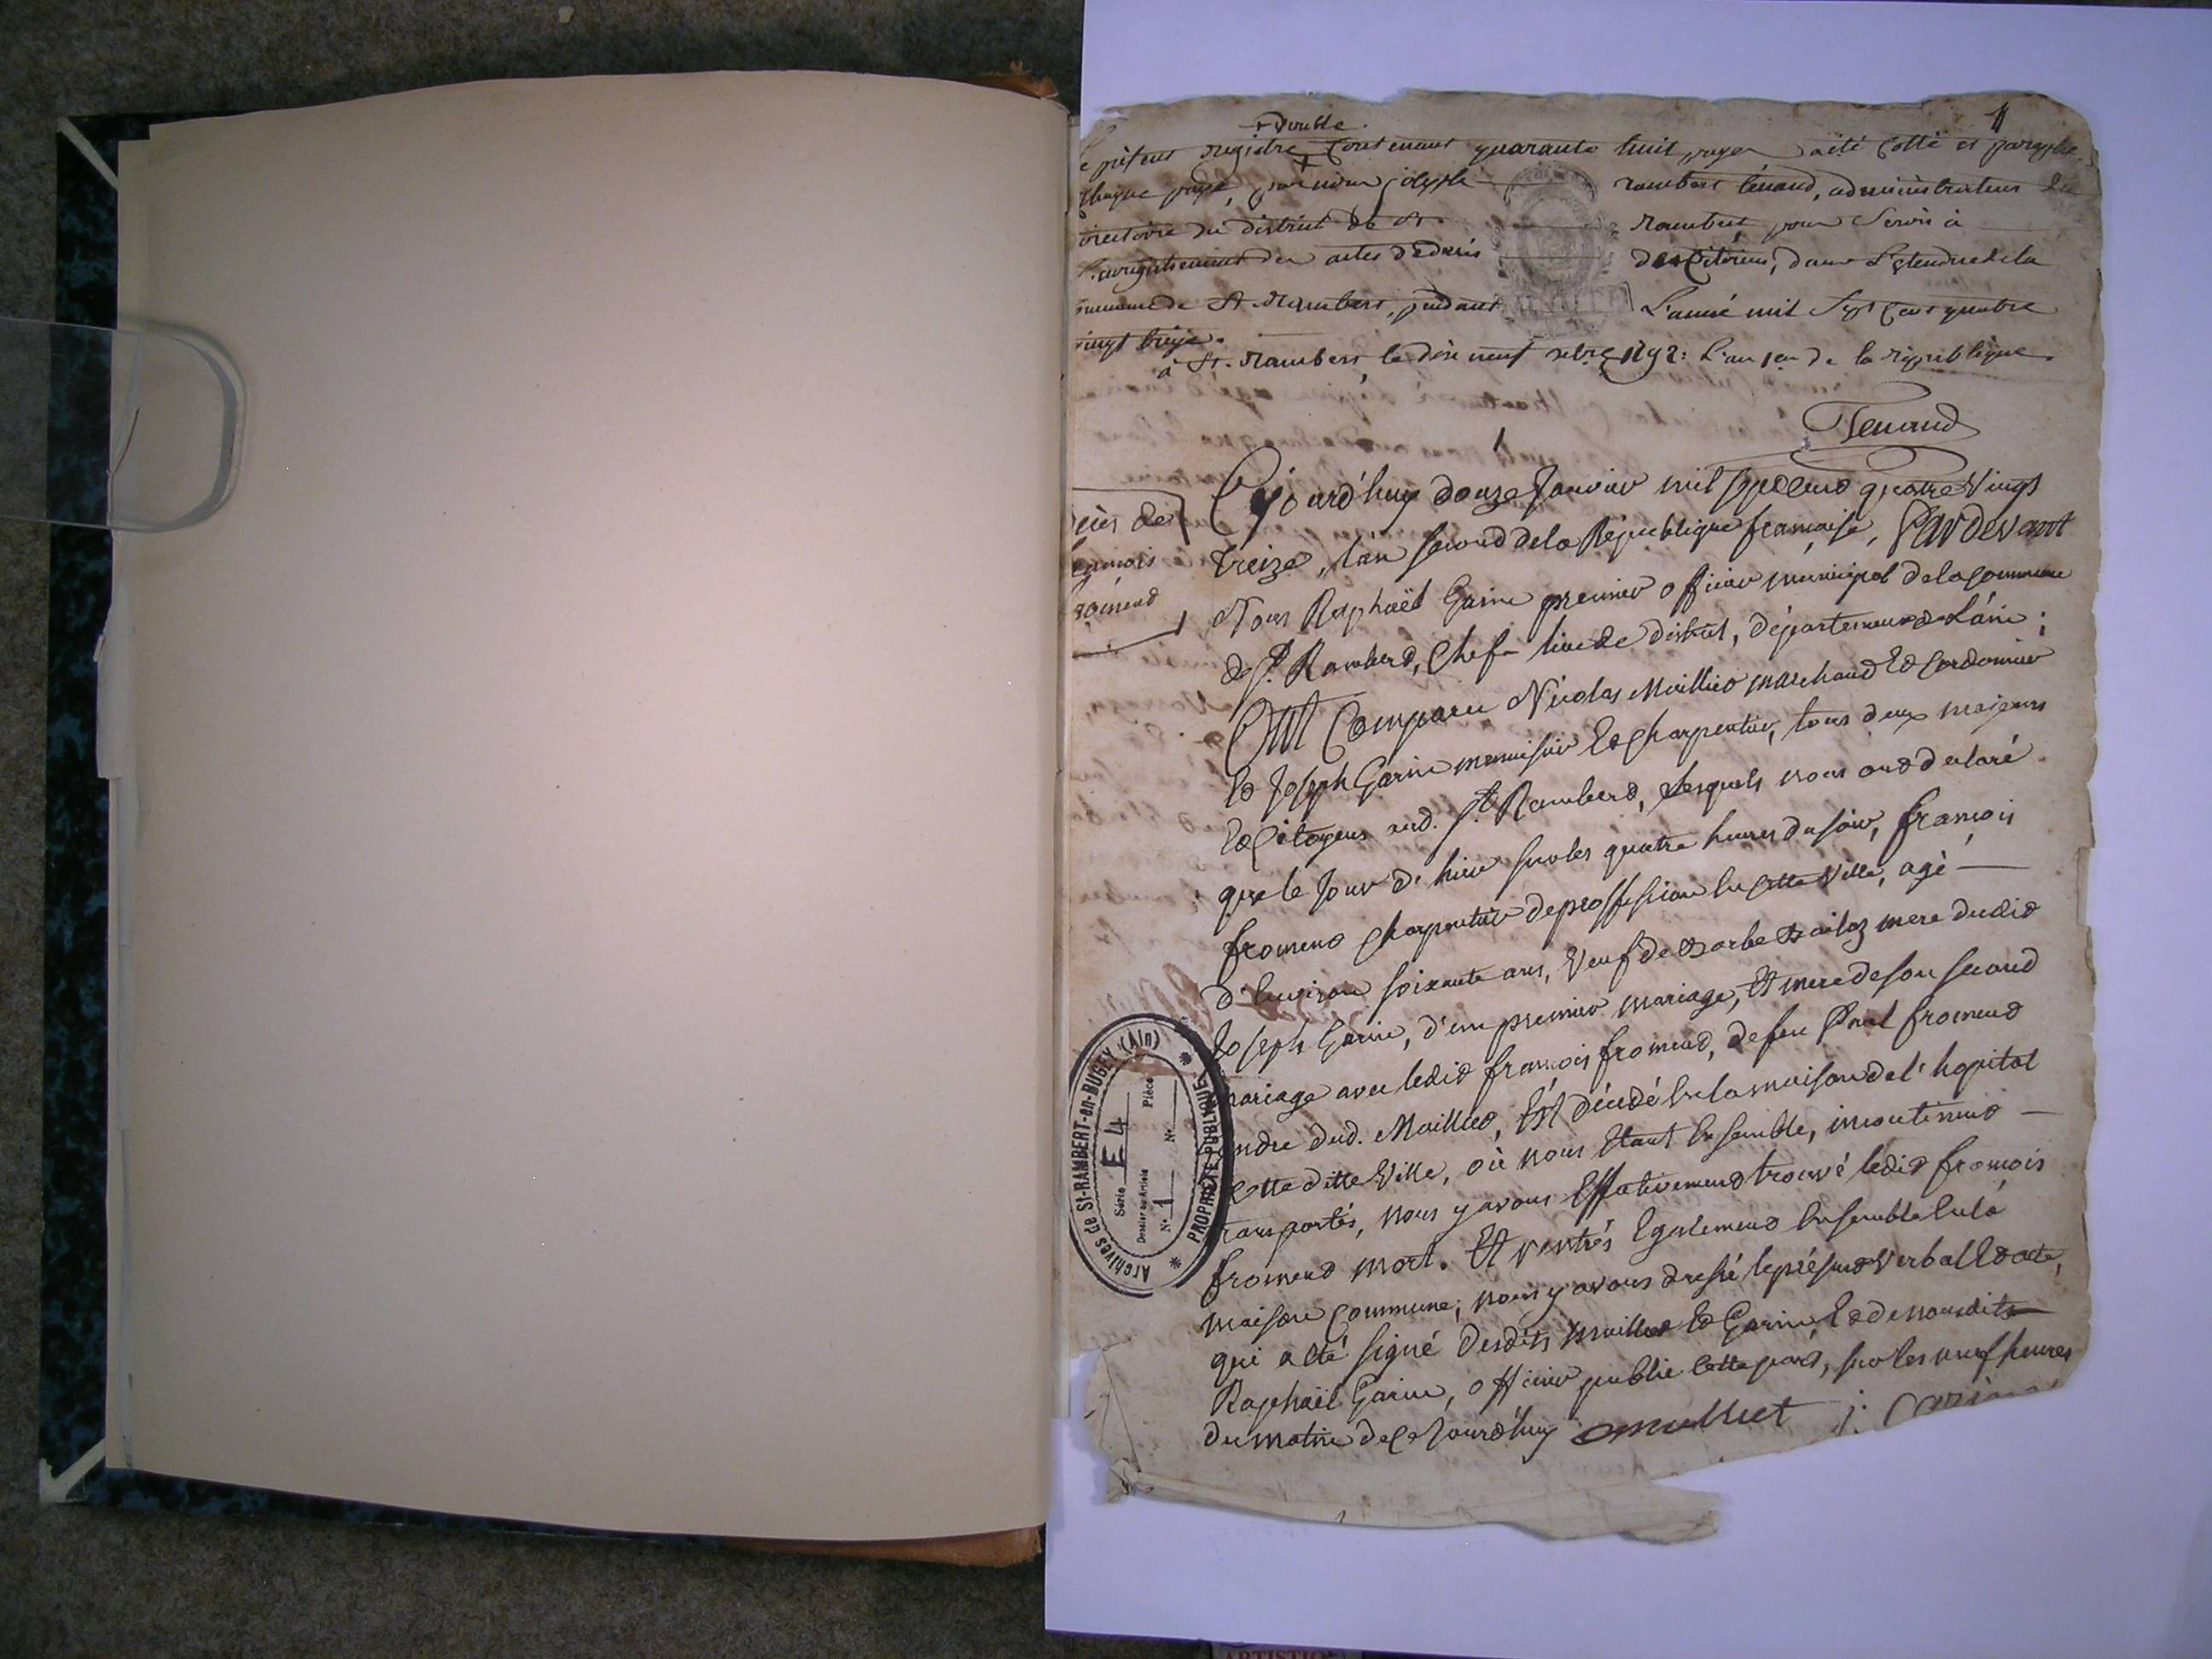 + Double.
1
e présent registre + Contenant quarante huit pages a été Cotté et paraphé
Chaque page, par nous joseph rambert tenand, administrateur du
irectoire du district de St. rambert, pour Servir à
l'enregistrement des actes de décès des Citoiens, dans L'étendue de la
ommune de St. Rambert, pendant L'année mil Sept Cent quatre
vingt treize.
à St. Rambert, le dix neuf xbre 1792: L'an 1er de la république.
Tenand
1
écès de
rançois
roment
Cejourd'huy douze Janvier mil sept cent quatre Vingt
treize, l'an second de la République française, Pardevant
Nous Raphaël Garin premier officier municipal de la Commune
de St. Rambert, Chef-lieu de district, département de L'ain;
Ont Comparu Nicolas Mulliet marchand Et Cordonnier
Et Joseph Garin menuisier Et Charpentier, tous deux majeurs
Et Citoyens aud. St. Rambert, Lesquels nous ont déclaré
que le Jour d'hier sur les quatre heures du soir, françois
froment Charpentier de proffession En Cette Ville, agé —
d'Environ soixante ans, Veuf de Barbe mere dudit
Joseph Garin, d'un premier mariage, Et mere de son second
mariage avec ledit françois froment, de feu Paul froment
endre dud. Mulliet, Est décédé En la maison de l'hopital
Cette ditte Ville, où nous Etant Ensemble, incontinent —
ransportés, nous y avons Effectivement trouvé ledit françois
froment mort. Et rentrés Egalement Ensemble En la
maison Commune, nous y avons dressé le présent Verbal Et acte,
qui a été signé desdits Mulliet Et Garin Et de nousdits
Raphaël Garin, officier public Cette part, sur les neuf heures
du matin de Ce Jourd'huy mulliet j: Carin
Archives de St-RAMBERT-en-BUGEY (Ain)
Série E 4
Dossier ou Article Pièce
N° 1 N°
* PROPRIÉTÉ PUBLIQUE *
ARTISTIQ